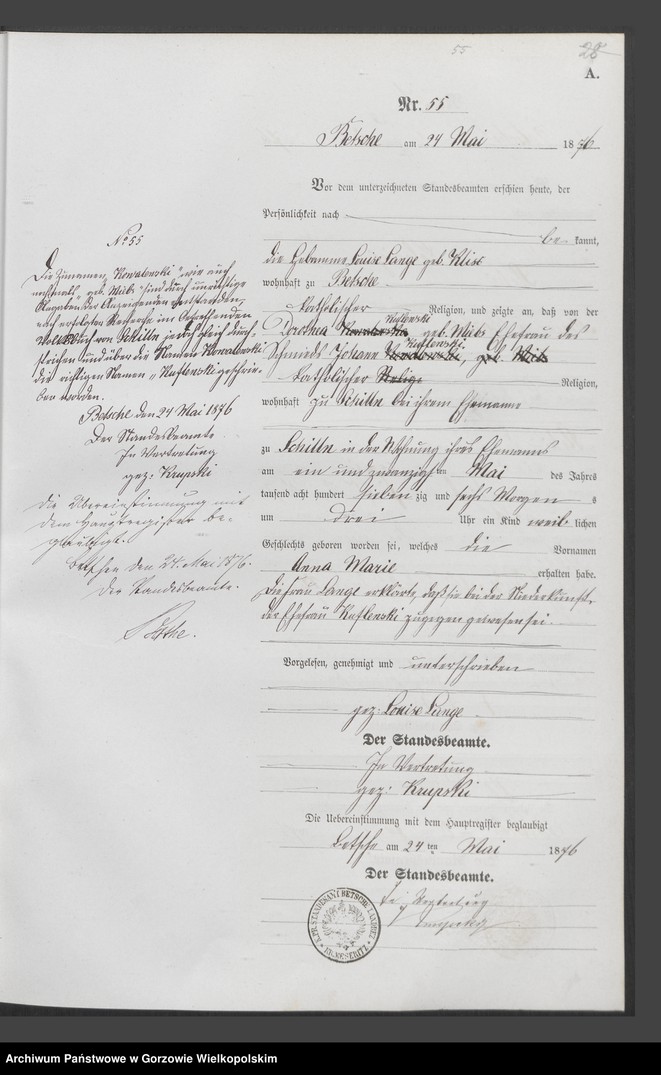 55
28
A.
Nr. 55
Betsche am 24 Mai 1876
Vor dem unterzeichneten Standesbeamten erschien heute, der
Persönlichkeit nach
be- kannt,
die Hebamme Louise Lange geb. Klisc
wohnhaft zu Betsche
katholischer Religion, und zeigte an, daß von der
Kaflewski
Dorothea Kowalewski geb. Mits Ehefrau des
Kaflewski
Schmieds Johann Kowalewski, geb. Mits
katholischer Religi Religion,
wohnhaft zu Schilln bei ihrem Ehemanne
zu Schilln in der Wohnung ihres Ehemanns
am ein und zwanzigsten ten Mai des Jahres
tausend acht hundert sieben zig und sechs Morgen s
um drei Uhr ein Kind weib lichen
Geschlechts geboren worden sei, welches die Vornamen
Anna Marie erhalten habe.
Die Frau Lange erklärte, daß sie bei der Niederkunft
der Ehefrau Kaflewski zugegen gewesen sei.
Vorgelesen, genehmigt und unterschrieben
gez: Louise Lange
Der Standesbeamte.
In Vertretung
gez: Krupski
Die Uebereinstimmung mit dem Hauptregister beglaubigt
Betsche am 24 ten Mai 1876
Der Standesbeamte.
In Vertretung
K.PR. STANDESAMT BETSCHE LANDBEZ.
KR. MESERITZ
No 55
Die Zunamen "Kowalewski" wie auch
nochmals "geb. Mits" sind durch unrichtige
Angaben der Anzeigenden entstanden,
nach erfolgter Recherche im betreffenden
von Schilln jedoch gleich durch-
strichen und über die Namen Kowalewski
die richtigen Namen "Kaflewski" geschrie-
ben worden.
Betsche den 24 Mai 1876
Der Standesbeamte
In Vertretung
gez: Krupski
Die Uebereinstimmung mit
dem Hauptregister be-
glaubigt.
Betsche den 24. Mai 1876.
Der Standesbeamte.
Archiwum Państwowe w Gorzowie Wielkopolskim